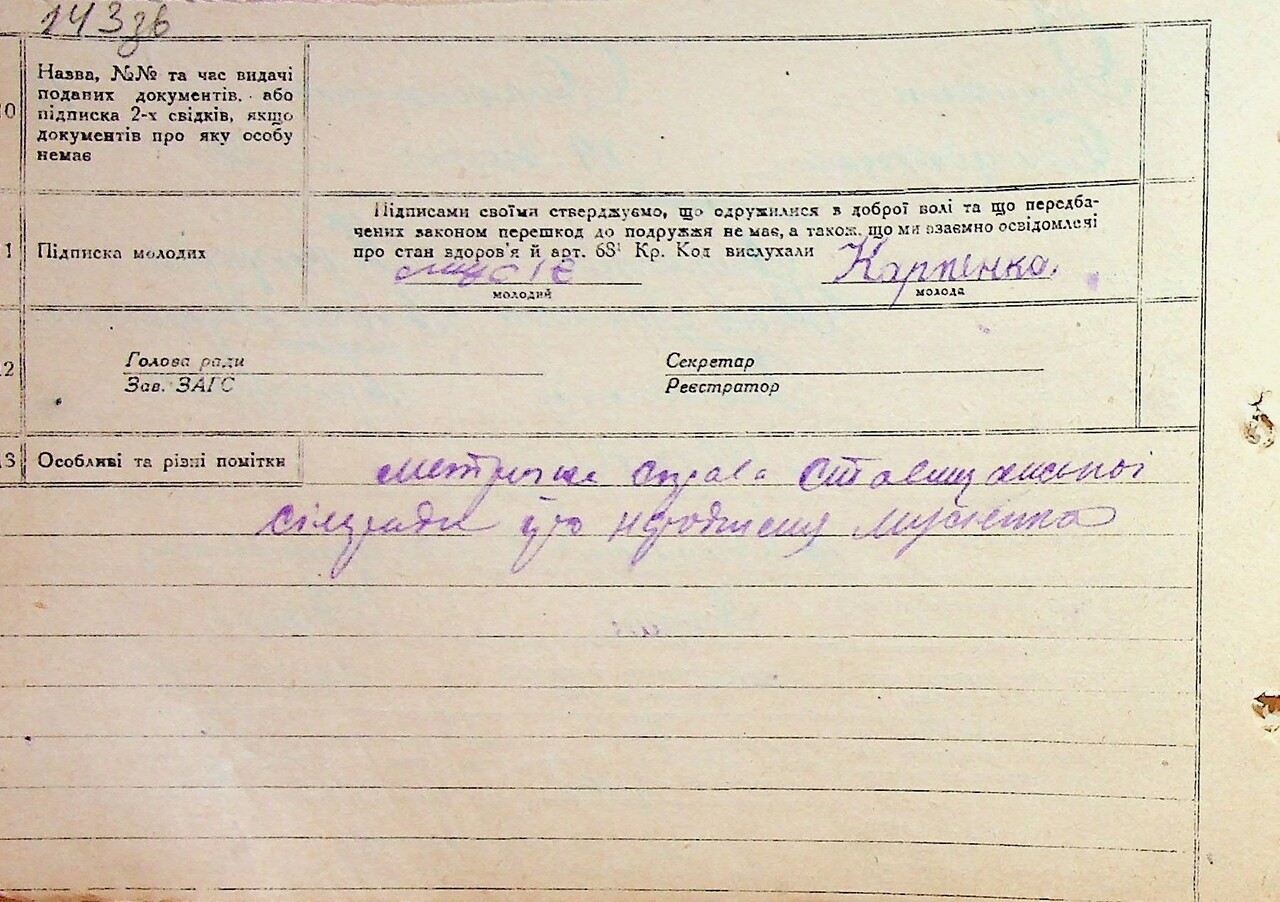 143зв
10
Назва, №№ та час видачі
поданих документів, або
підписка 2-х свідків, якщо
документів про яку особу
немає
1
Підписка молодих
Підписами своїми стверджуємо, що одружилися в доброї волі та що передба-
чених законом перешкод до подружжя немає, а також, що ми взаємно освідомлені
про стан здоров'я й арт. 68¹ Кр. Код вислухали
Карпенко
молодий
молода
2
Голова ради
Секретар
Зав. ЗАГС
Реєстратор
3
Особливі та різні помітки
справа
сільради про народження Мусієнка